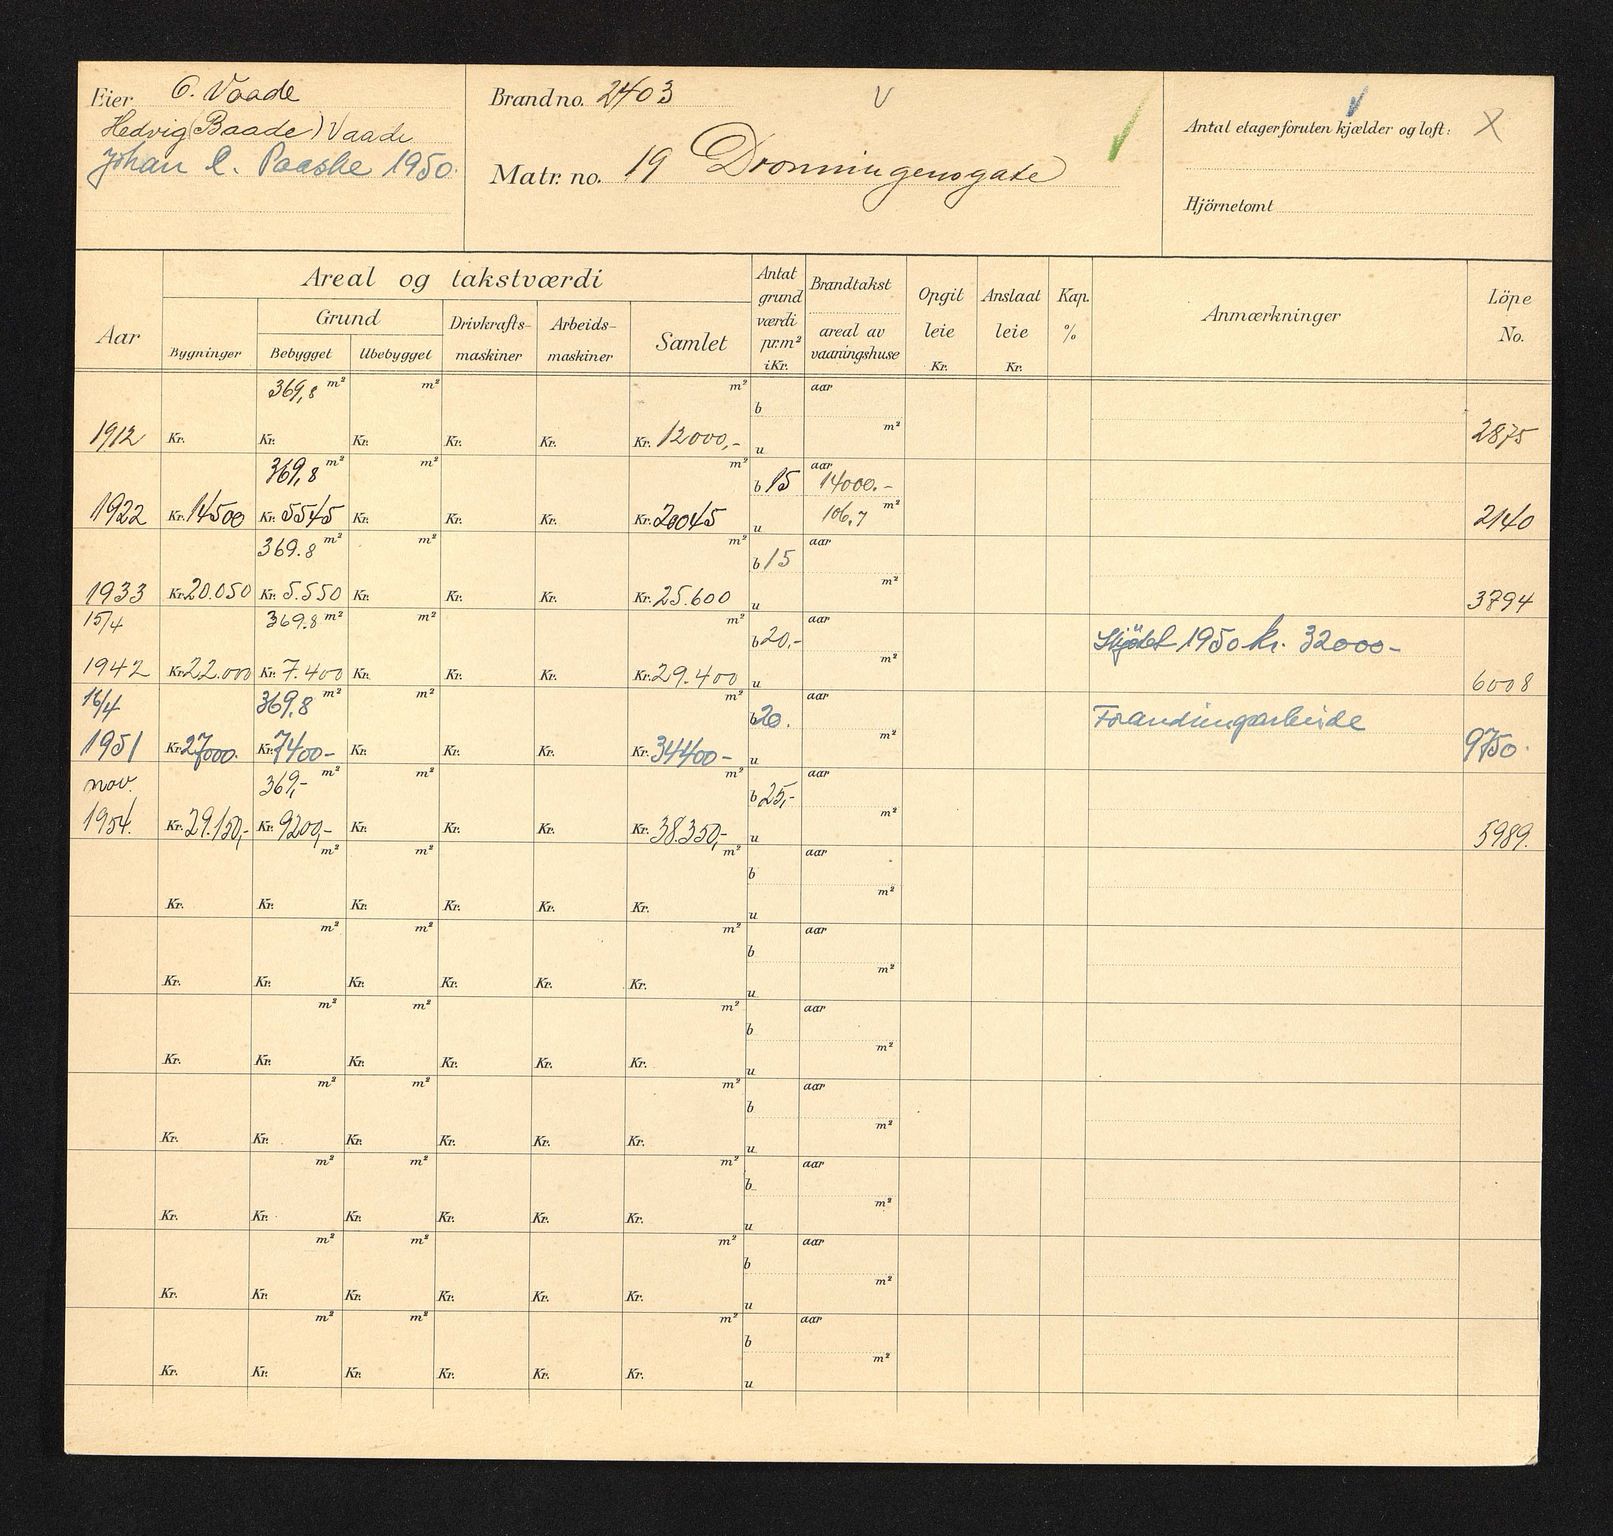 Eier O. Vaade
Hedvig (Baade) Vaade
Johan C. Paaske 1950.
Brandno. 2403 V
Matr. no. 19 Dronningensgate
Antal etager foruten kjælder og loft: X
Hjörnetomt
Aar
Areal og takstværdi
Bygninger
Grund
Bebygget Ubebygget
Drivkrafts-maskiner
Arbeids-maskiner
Samlet
Antat grund værdi pr.m² i Kr.
Brandtakst
areal av vaaningshuse
Opgit leie Kr.
Anslaat leie Kr.
Kap. %
Anmærkninger
Löpe No.
369,8 m² m² m² b aar
1912 Kr. Kr. Kr. Kr. Kr. Kr. 12000,- u m² 2875
369,8 m² m² m² b 15 aar 14000.-
1922 Kr. 14500 Kr. 5545 Kr. Kr. Kr. Kr. 20045 u 106,7 m² 2140
369.8 m² m² m² b 15 aar
1933 Kr. 20.050 Kr. 5.550 Kr. Kr. Kr. Kr. 25.600 u m² 3794
15/4 369.8 m² m² m² b 20,- aar Skjødet 1950 kr. 32000-
1942 Kr. 22.000 Kr. 7.400 Kr. Kr. Kr. Kr. 29.400 u m² 6008
16/4 369,8 m² m² m² b 20. aar
1951 Kr. 27000. Kr. 7400- Kr. Kr. Kr. Kr. 34400- u m² 9750.
nov. 369,- m² m² m² b 25,- aar
1954. Kr. 29.150,- Kr. 9200,- Kr. Kr. Kr. Kr. 38.350,- u m² 5989.
m² m² m² b aar
Kr. Kr. Kr. Kr. Kr. Kr. u m²
m² m² m² b aar
Kr. Kr. Kr. Kr. Kr. Kr. u m²
m² m² m² b aar
Kr. Kr. Kr. Kr. Kr. Kr. u m²
m² m² m² b aar
Kr. Kr. Kr. Kr. Kr. Kr. u m²
m² m² m² b aar
Kr. Kr. Kr. Kr. Kr. Kr. u m²
m² m² m² b aar
Kr. Kr. Kr. Kr. Kr. Kr. u m²
m² m² m² b aar
Kr. Kr. Kr. Kr. Kr. Kr. u m²